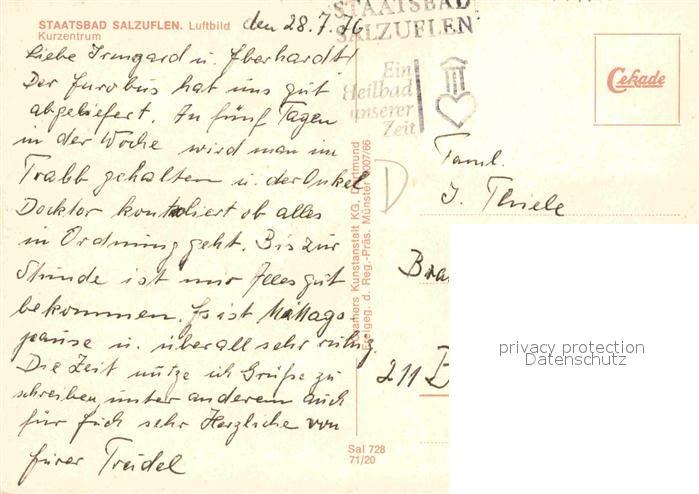 STAATSBAD SALZUFLEN. Luftbild
Kurzentrum
den 28.7.76
Liebe Irmgard u. Eberhardt!
Der Eurobus hat uns gut
abgeliefert. An fünf Tagen
in der Woche wird man im
Trabb gehalten u. der Onkel
Docktor kontroliert ob alles
in Ordnung geht. Bis zur
Stunde ist mir Alles gut
bekommen. Es ist Mittags
pause u. überall sehr ruhig.
Die Zeit nutze ich Grüße zu
schreiben, unter anderem auch
für Euch sehr Herzliche von
Eurer Trudel
STAATSBAD
SALZUFLEN
Ein
Heilbad
unserer
Zeit
Cekade
Faml.
J. Thiele
Bra
211
Kunstanstalt KG, Dortmund
Freigeg. d. Reg.-Präs. Münster 2007/66
Sal 728
71/20
privacy protection
Datenschutz